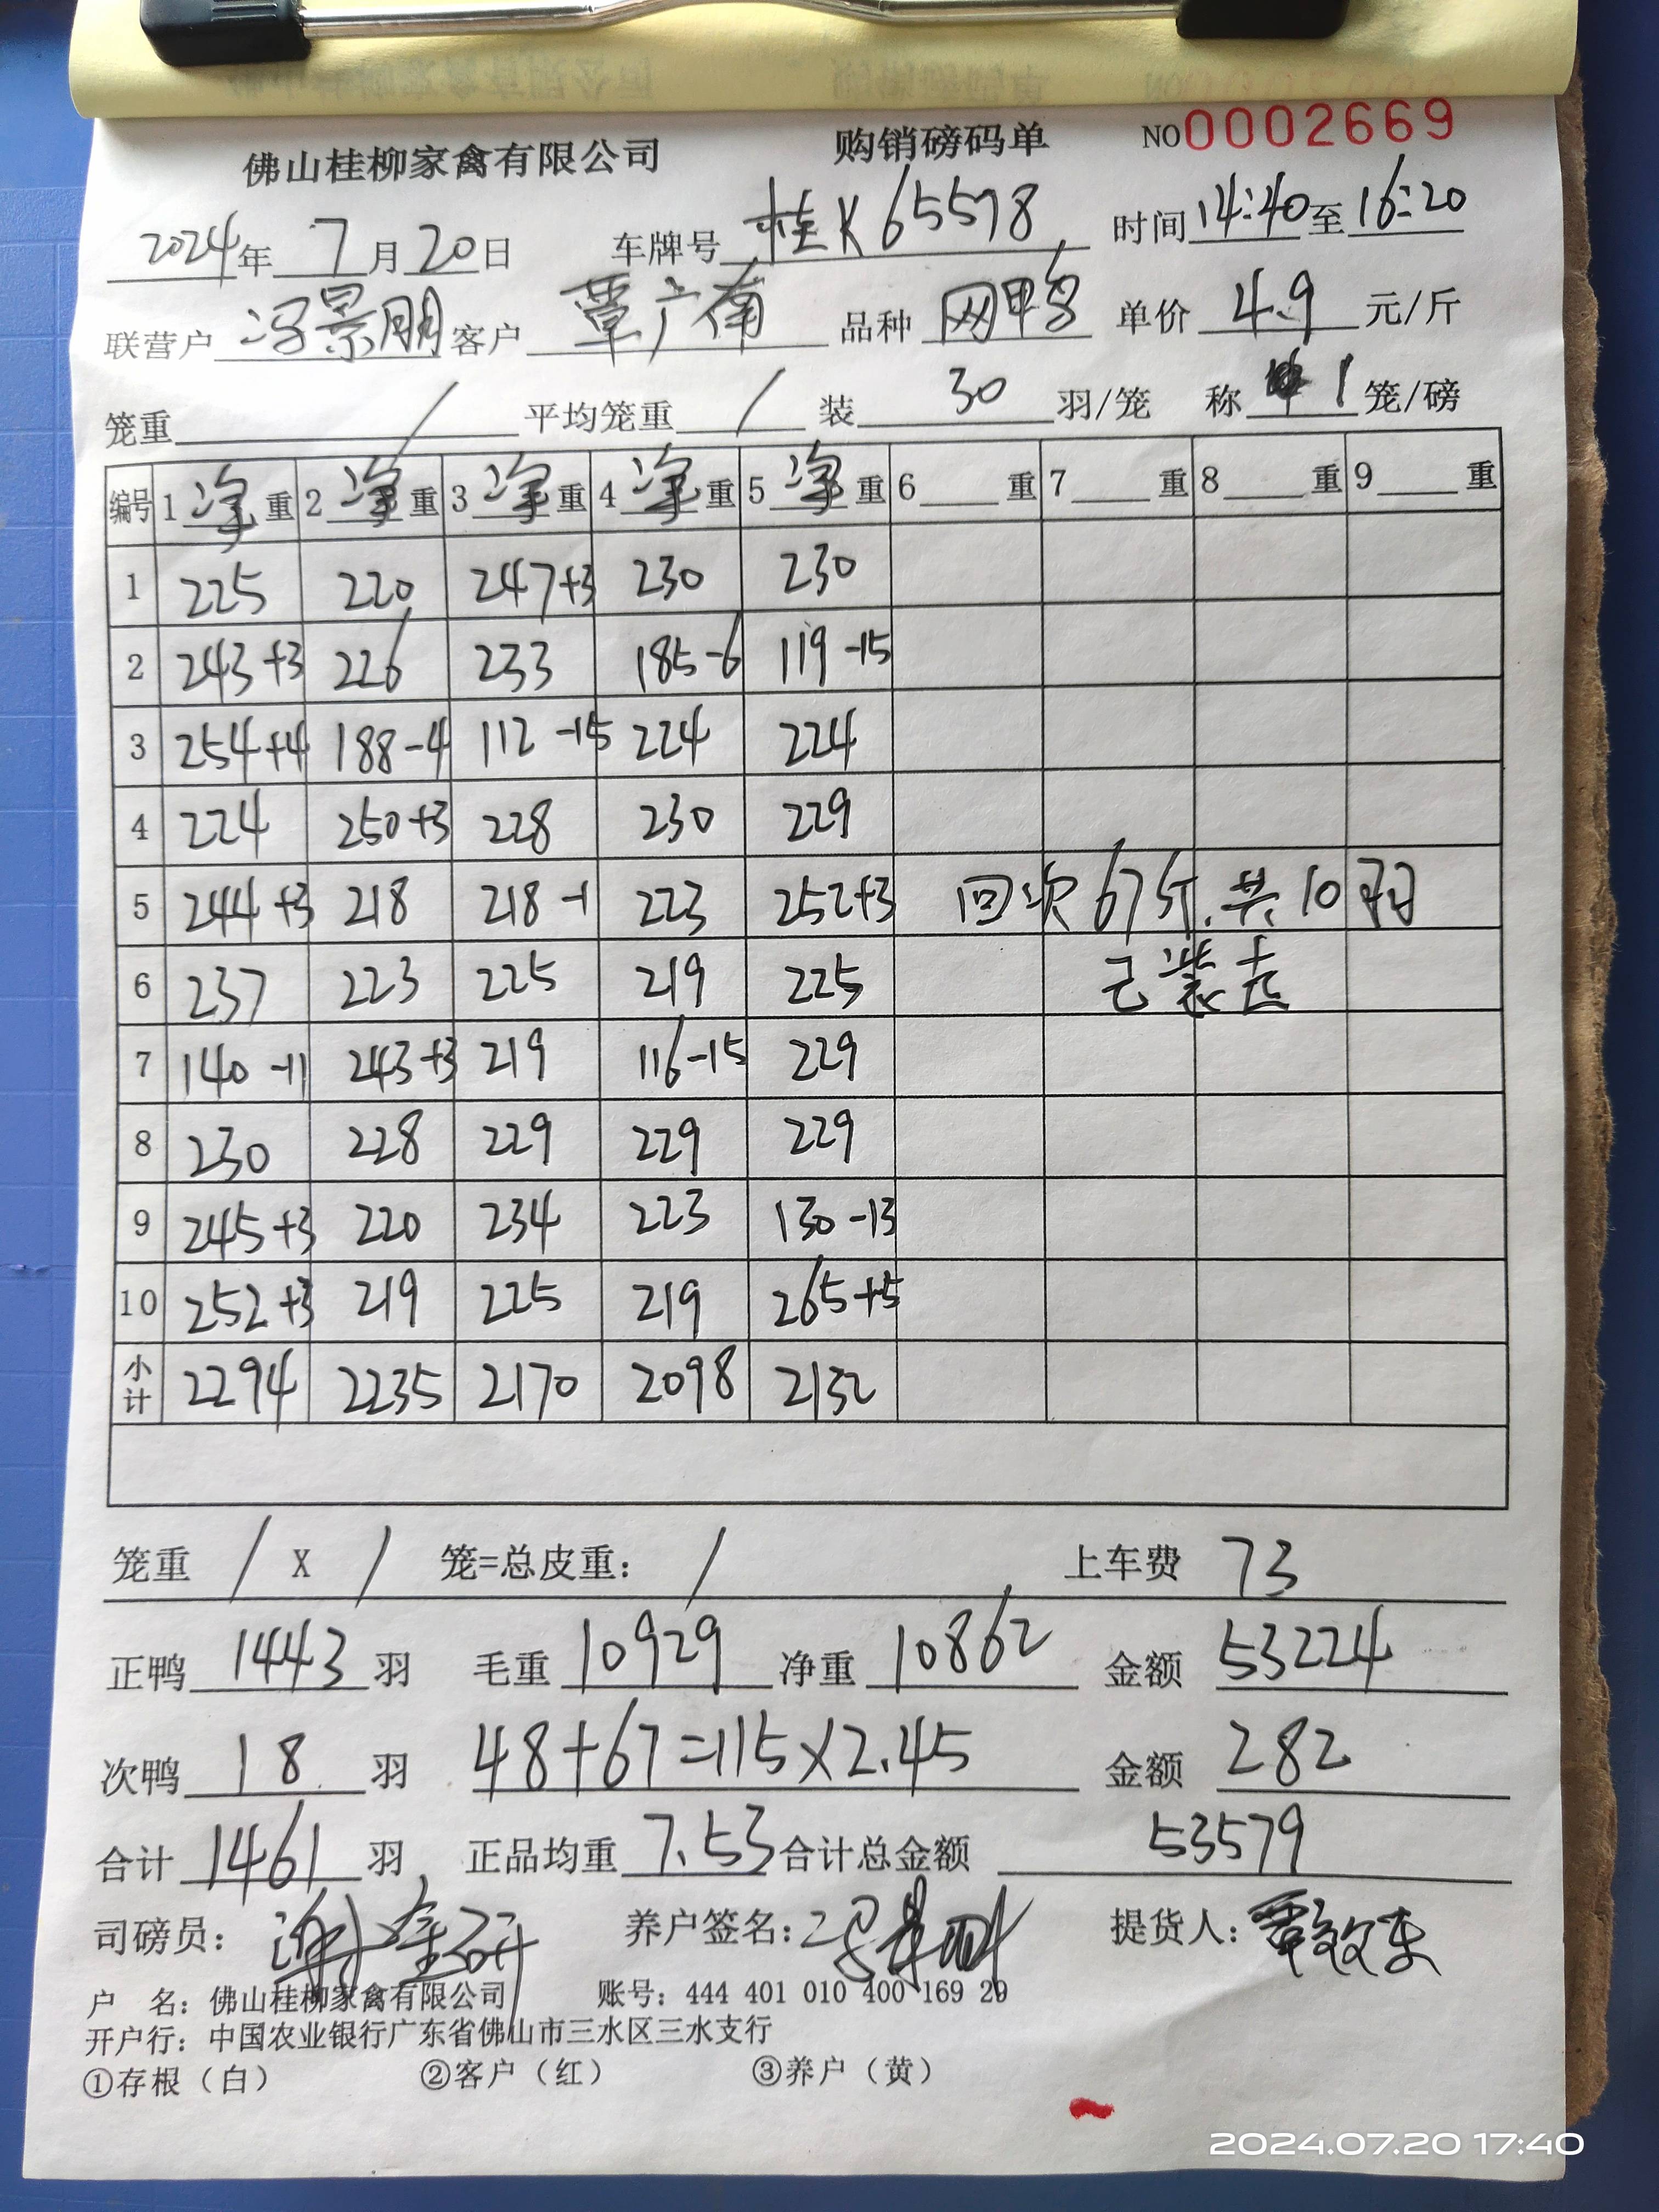 佛山桂柳家禽有限公司 购销磅码单 NO 0002669
2024年 7月20日 车牌号 桂K65578 时间 14:40至16:20
联营户 冯景朋 客户 覃广南 品种 网鸭 单价 4.9 元/斤
笼重 / 平均笼重 / 装 30 羽/笼 称 1 笼/磅
编号 1净重 2净重 3净重 4净重 5净重 6 重 7 重 8 重 9 重
1 225 220 247+3 230 230
2 243+3 226 233 185-6 119-15
3 254+4 188-4 112-15 224 224
4 224 250+3 228 230 229
5 244+3 218 218-1 223 252+3 回次67斤.共10羽
6 237 223 225 219 225 己装去
7 140-11 243+3 219 116-15 229
8 230 228 229 229 229
9 245+3 220 234 223 130-13
10 252+3 219 225 219 265+5
小计 2294 2235 2170 2098 2132
笼重 / X / 笼=总皮重: / 上车费 73
正鸭 1443 羽 毛重 10929 净重 10862 金额 53224
次鸭 18 羽 48+67=115×2.45 金额 282
合计 1461 羽 正品均重 7.53 合计总金额 53579
司磅员: 养户签名: 冯景朋 提货人:
户 名: 佛山桂柳家禽有限公司 账号: 444 401 010 400 169 29
开户行: 中国农业银行广东省佛山市三水区三水支行
①存根（白） ②客户（红） ③养户（黄）
2024.07.20 17:40